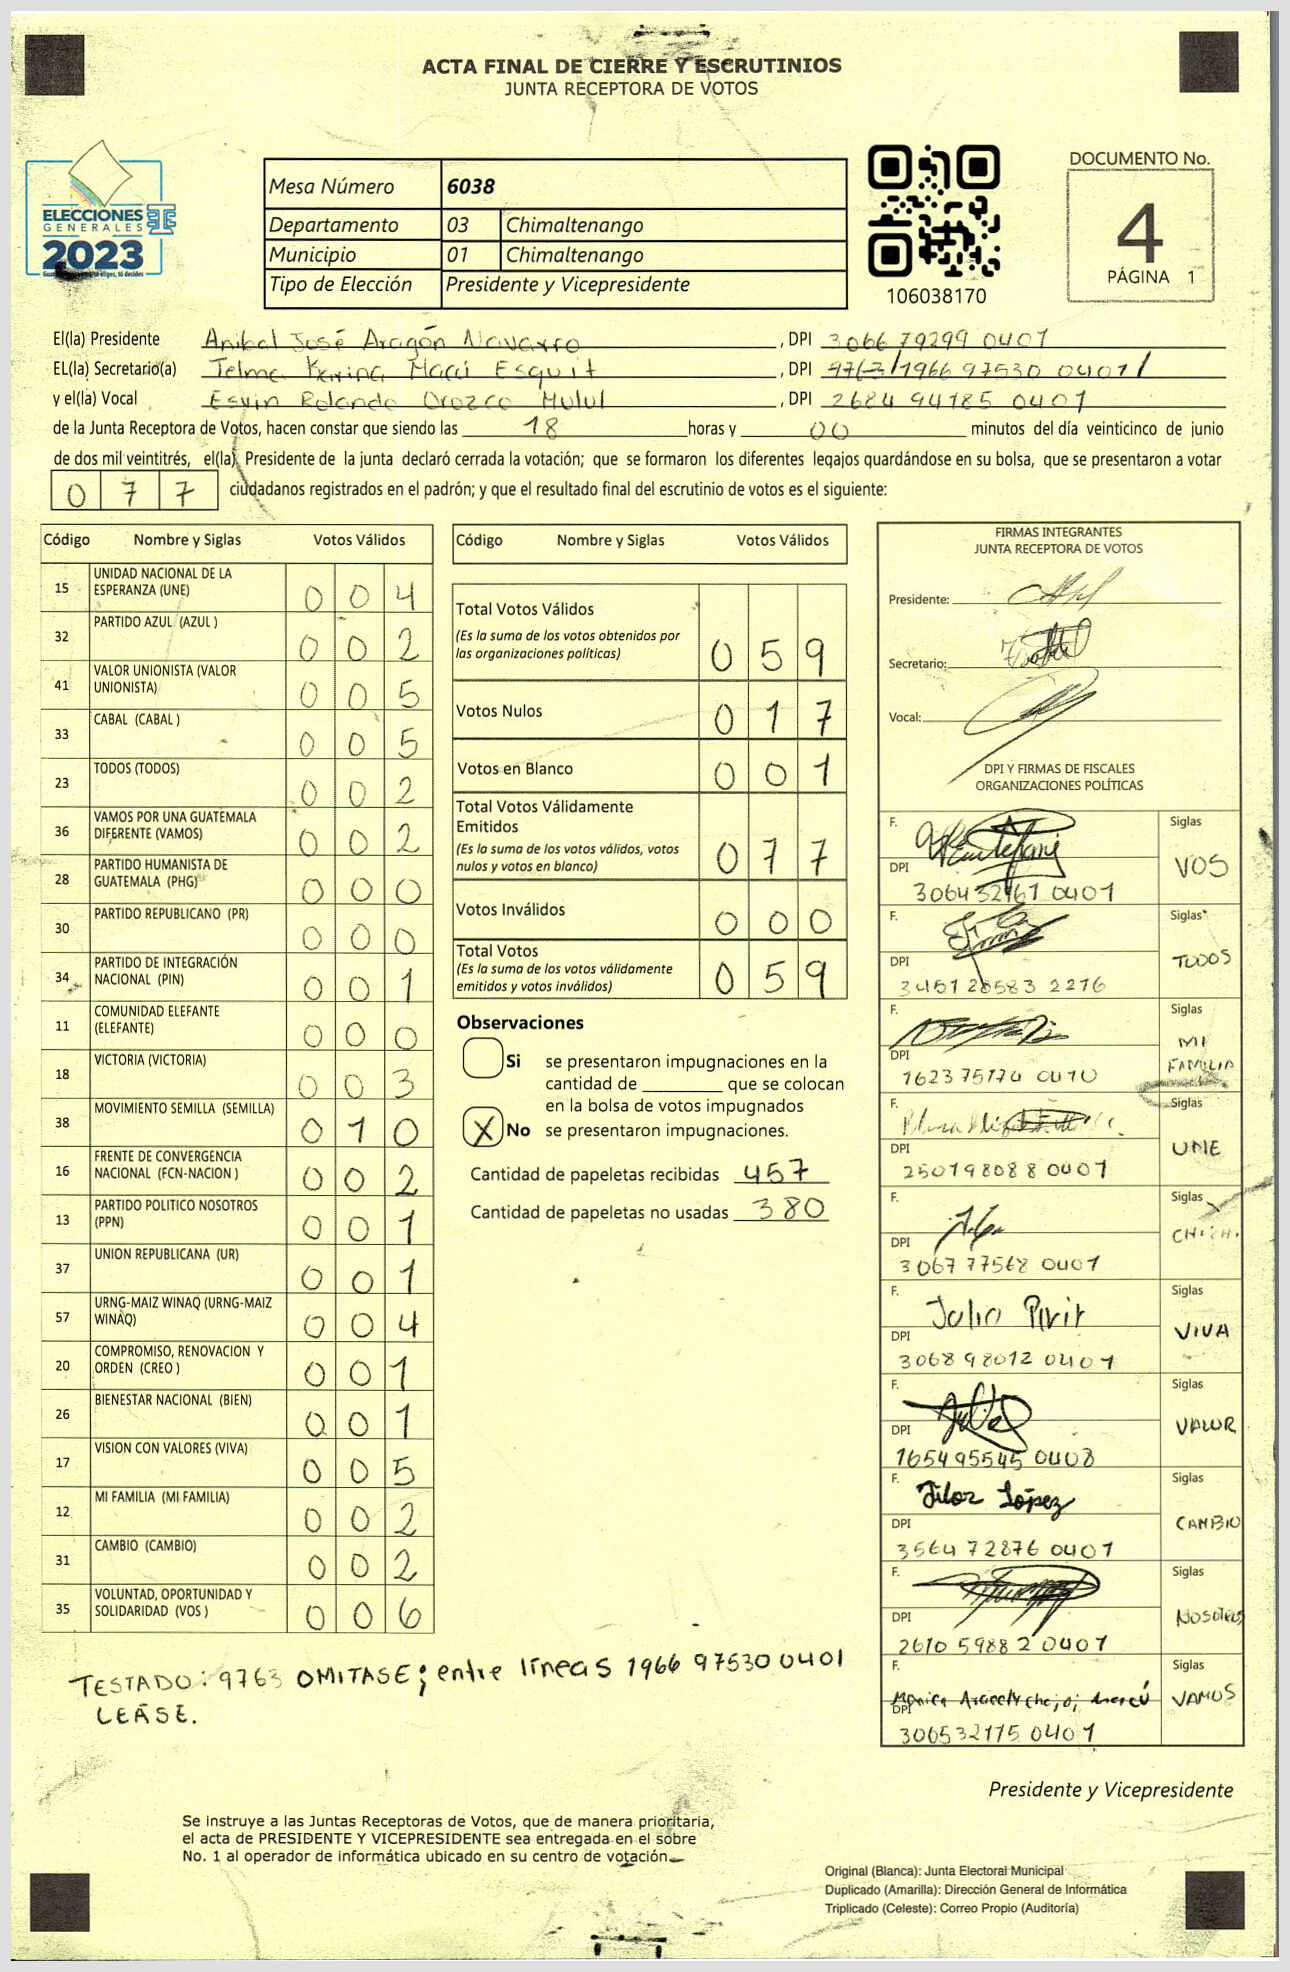 ACTA FINAL DE CIERRE Y ESCRUTINIOS
JUNTA RECEPTORA DE VOTOS
ELECCIONES
GENERALES
2023
Mesa Número 6038
Departamento 03 Chimaltenango
Municipio 01 Chimaltenango
Tipo de Elección Presidente y Vicepresidente
106038170
DOCUMENTO No.
4
PÁGINA 1
El(la) Presidente Anibal José Aragón Navarro, DPI 3066 79299 0401
EL(la) Secretario(a) Telma Karina Macú Esquit, DPI 9763/1966 97530 0401/
y el(la) Vocal Esvin Rolando Orozco Mulul, DPI 2684 94185 0401
de la Junta Receptora de Votos, hacen constar que siendo las 18 horas y 00 minutos del día veinticinco de junio
de dos mil veintitrés, el(la) Presidente de la junta declaró cerrada la votación; que se formaron los diferentes legajos guardándose en su bolsa, que se presentaron a votar
0 7 7 ciudadanos registrados en el padrón; y que el resultado final del escrutinio de votos es el siguiente:
Código Nombre y Siglas Votos Válidos
15 UNIDAD NACIONAL DE LA ESPERANZA (UNE) 0 0 4
32 PARTIDO AZUL (AZUL ) 0 0 2
41 VALOR UNIONISTA (VALOR UNIONISTA) 0 0 5
33 CABAL (CABAL ) 0 0 5
23 TODOS (TODOS) 0 0 2
36 VAMOS POR UNA GUATEMALA DIFERENTE (VAMOS) 0 0 2
28 PARTIDO HUMANISTA DE GUATEMALA (PHG) 0 0 0
30 PARTIDO REPUBLICANO (PR) 0 0 0
34 PARTIDO DE INTEGRACIÓN NACIONAL (PIN) 0 0 1
11 COMUNIDAD ELEFANTE (ELEFANTE) 0 0 0
18 VICTORIA (VICTORIA) 0 0 3
38 MOVIMIENTO SEMILLA (SEMILLA) 0 1 0
16 FRENTE DE CONVERGENCIA NACIONAL (FCN-NACION ) 0 0 2
13 PARTIDO POLITICO NOSOTROS (PPN) 0 0 1
37 UNION REPUBLICANA (UR) 0 0 1
57 URNG-MAIZ WINAQ (URNG-MAIZ WINAQ) 0 0 4
20 COMPROMISO, RENOVACION Y ORDEN (CREO ) 0 0 1
26 BIENESTAR NACIONAL (BIEN) 0 0 1
17 VISION CON VALORES (VIVA) 0 0 5
12 MI FAMILIA (MI FAMILIA) 0 0 2
31 CAMBIO (CAMBIO) 0 0 2
35 VOLUNTAD, OPORTUNIDAD Y SOLIDARIDAD (VOS ) 0 0 6
Código Nombre y Siglas Votos Válidos
Total Votos Válidos
(Es la suma de los votos obtenidos por
las organizaciones políticas) 0 5 9
Votos Nulos 0 1 7
Votos en Blanco 0 0 1
Total Votos Válidamente
Emitidos
(Es la suma de los votos válidos, votos
nulos y votos en blanco) 0 7 7
Votos Inválidos 0 0 0
Total Votos
(Es la suma de los votos válidamente
emitidos y votos inválidos) 0 5 9
Observaciones
Si se presentaron impugnaciones en la
cantidad de ________ que se colocan
en la bolsa de votos impugnados
X No se presentaron impugnaciones.
Cantidad de papeletas recibidas 457
Cantidad de papeletas no usadas 380
FIRMAS INTEGRANTES
JUNTA RECEPTORA DE VOTOS
Presidente:
Secretario:
Vocal:
DPI Y FIRMAS DE FISCALES
ORGANIZACIONES POLÍTICAS
F. Siglas
VOS
DPI
306432161 0401
F. Siglas
TODOS
DPI
3451 20583 2216
F. Siglas
MI FAMILIA
DPI
1623 75174 0410
F. Siglas
UNE
DPI
250198088 0401
F. Siglas
DPI
3067 77568 0401
F. Julio Pirir Siglas
VIVA
DPI
3068 98012 0401
F. Siglas
VALOR
DPI
165495545 0408
F. López Siglas
CAMBIO
DPI
3564 72876 0401
F. Siglas
NOSOTROS
DPI
2610 5988 2 0401
F. Monica Siglas
VAMOS
DPI
306532115 0401
TESTADO: 9763 OMITASE; entre líneas 1966 97530 0401
LEÁSE.
Presidente y Vicepresidente
Se instruye a las Juntas Receptoras de Votos, que de manera prioritaria,
el acta de PRESIDENTE Y VICEPRESIDENTE sea entregada en el sobre
No. 1 al operador de informática ubicado en su centro de votación
Original (Blanca): Junta Electoral Municipal
Duplicado (Amarilla): Dirección General de Informática
Triplicado (Celeste): Correo Propio (Auditoría)